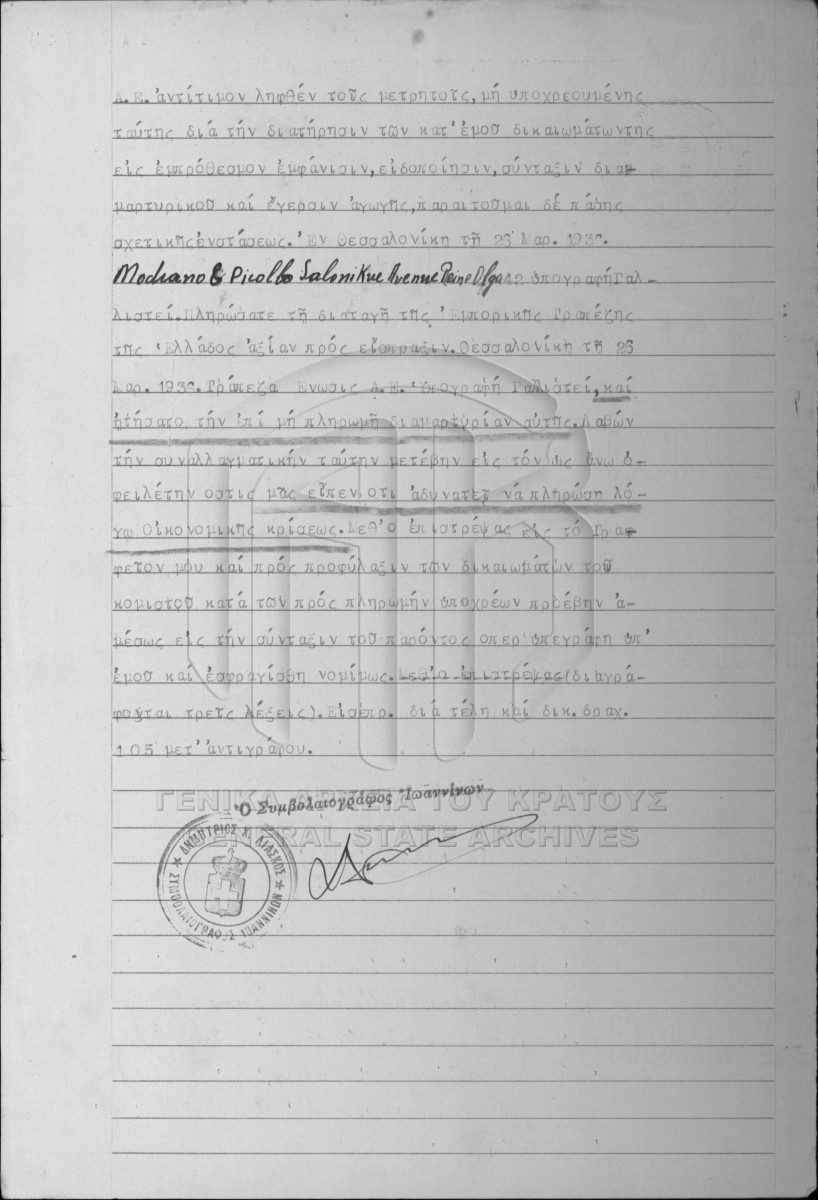 Α.Ε. ἀντίτιμον ληφθέν τοῖς μετρητοῖς, μή ὑποχρεουμένης
ταύτης διά τήν διατήρησιν τῶν κατ' ἐμοῦ δικαιωμάτωντης
εἰς ἐμπρόθεσμον ἐμφάνισιν, εἰδοποίησιν, σύνταξιν δια-
μαρτυρικοῦ καί ἔγερσιν ἀγωγῆς, παραιτοῦμαι δέ πάσης
σχετικῆς ἐνστάσεως. Ἐν Θεσσαλονίκῃ τῇ 26 Μαρ. 1936.
Modiano & Picollo Salonikue Avenue Reine Olga 42 ὑπογραφή Γαλ-
λιστεί. Πληρώσατε τῇ διαταγῇ τῆς Ἐμπορικῆς Τραπέζης
τῆς Ἑλλάδος ἀξίαν πρός εἴσπραξιν. Θεσσαλονίκη τῇ 26
Μαρ. 1936. Τράπεζα Ἕνωσις Α.Ε. Ὑπογραφή Γαλιστεί, καί
ᾐτήσατο τήν ἐπί μή πληρωμῇ διαμαρτυρίαν αὐτῆς. Λαβών
τήν συναλλαγματικήν ταύτην μετέβην εἰς τόν ὡς ἄνω ὀ-
φειλέτην ὅστις μᾶς εἶπεν ὅτι ἀδυνατεῖ νά πληρώσῃ λό-
γῳ Οἰκονομικῆς κρίσεως. Μεθ' ὅ ἐπιστρέψας εἰς τό Γρα-
φεῖον μου καί πρός προφύλαξιν τῶν δικαιωμάτων τοῦ
κομιστοῦ κατά τῶν πρός πληρωμήν ὑποχρέων προέβην ἀ-
μέσως εἰς τήν σύνταξιν τοῦ παρόντος ὅπερ ὑπεγράφη ὑπ'
ἐμοῦ καί ἐσφραγίσθη νομίμως. Μεθ' ὅ ἐπιστρέψας (διαγρά-
φοῦται τρεῖς λέξεις). Εἰσέπρ. διά τέλη καί δικ. δραχ.
105 μετ' ἀντιγράφου.
Ὁ Συμβολαιογράφος Ἰωαννίνων
ΓΕΝΙΚΑ ΑΡΧΕΙΑ ΤΟΥ ΚΡΑΤΟΥΣ
GENERAL STATE ARCHIVES
ΔΗΜΗΤΡΙΟΣ Χ. ΛΙΑΣΚΟΣ
ΣΥΜΒΟΛΑΙΟΓΡΑΦΟΣ ΙΩΑΝΝΙΝΩΝ